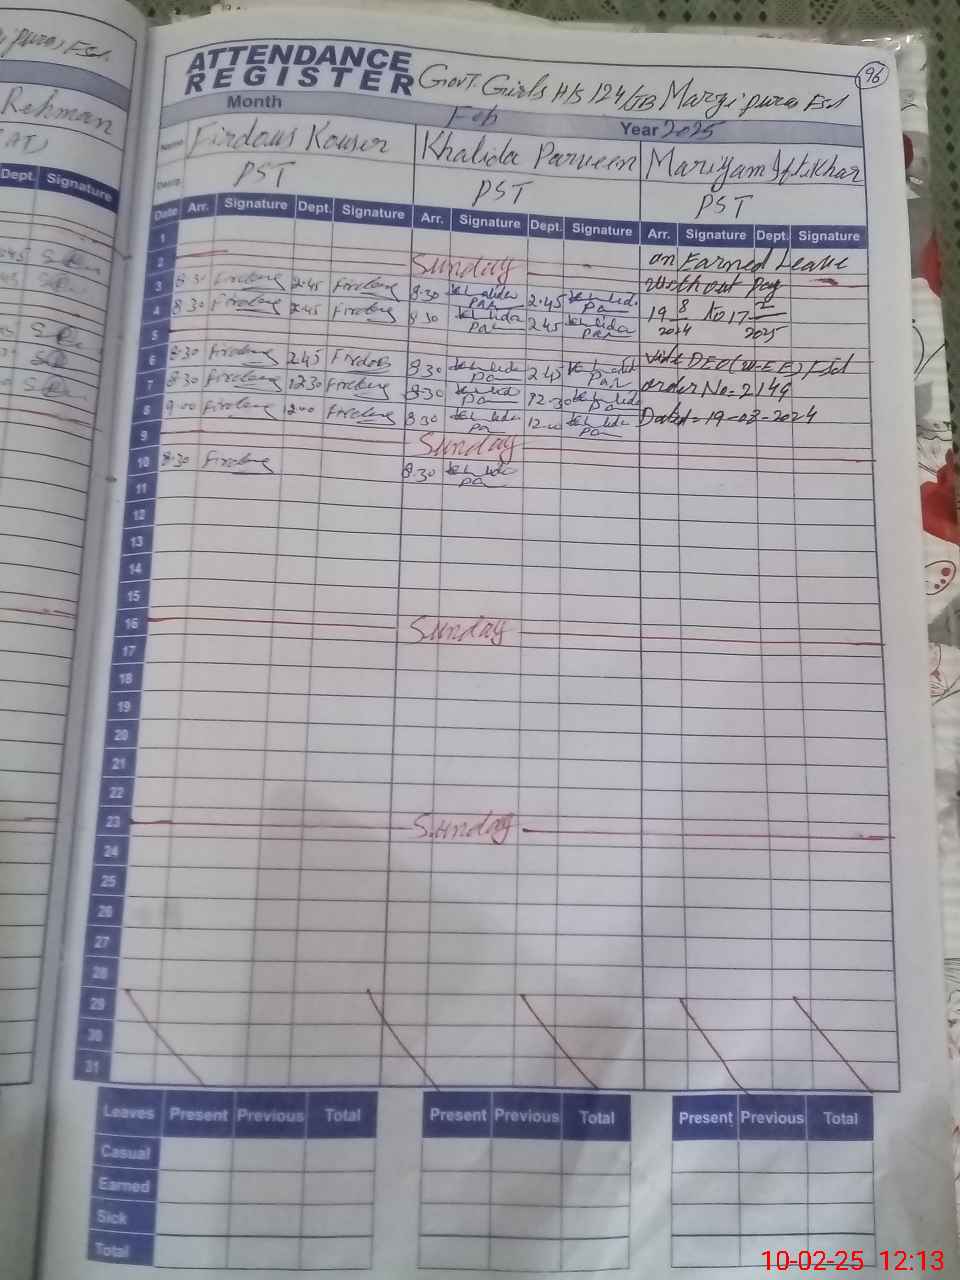 ATTENDANCE
REGISTER
Govt. Girls H/S 124/GB Marzipura Fsd
96
Month Feb Year 2025
Name Firdous Kouser Khalida Parveen Mariyam Iftikhar
PST PST PST
Date Arr. Signature Dept. Signature Arr. Signature Dept. Signature Arr. Signature Dept. Signature
1 on Earned Leave
2 Sunday without pay
3 8:30 Firdous 2:45 Firdous 8:30 Khalida Par 2:45 Khalida Par 19 8 2024 to 17 2025
4 8:30 Firdous 2:45 Firdous 8:30 Khalida Par 2:45 Khalida Par
5 vide DEO (W-EE) Fsd
6 8:30 Firdous 2:45 Firdous 8:30 Khalida Par 2:45 Khalida Par order No = 2144
7 8:30 Firdous 12:30 Firdous 8:30 Khalida Par 12-30 Khalida Par Dated = 19-08-2024
8 9:00 Firdous 12:00 Firdous 8:30 Khalida Par Khalida Par
9 Sunday
10 8:30 Firdous 8:30 Khalida Par
11
12
13
14
15
16 Sunday
17
18
19
20
21
22
23 Sunday
24
25
26
27
28
29
30
31
Leaves Present Previous Total Present Previous Total Present Previous Total
Casual
Earned
Sick
Total
Rehman
Dept. Signature
10-02-25 12:13